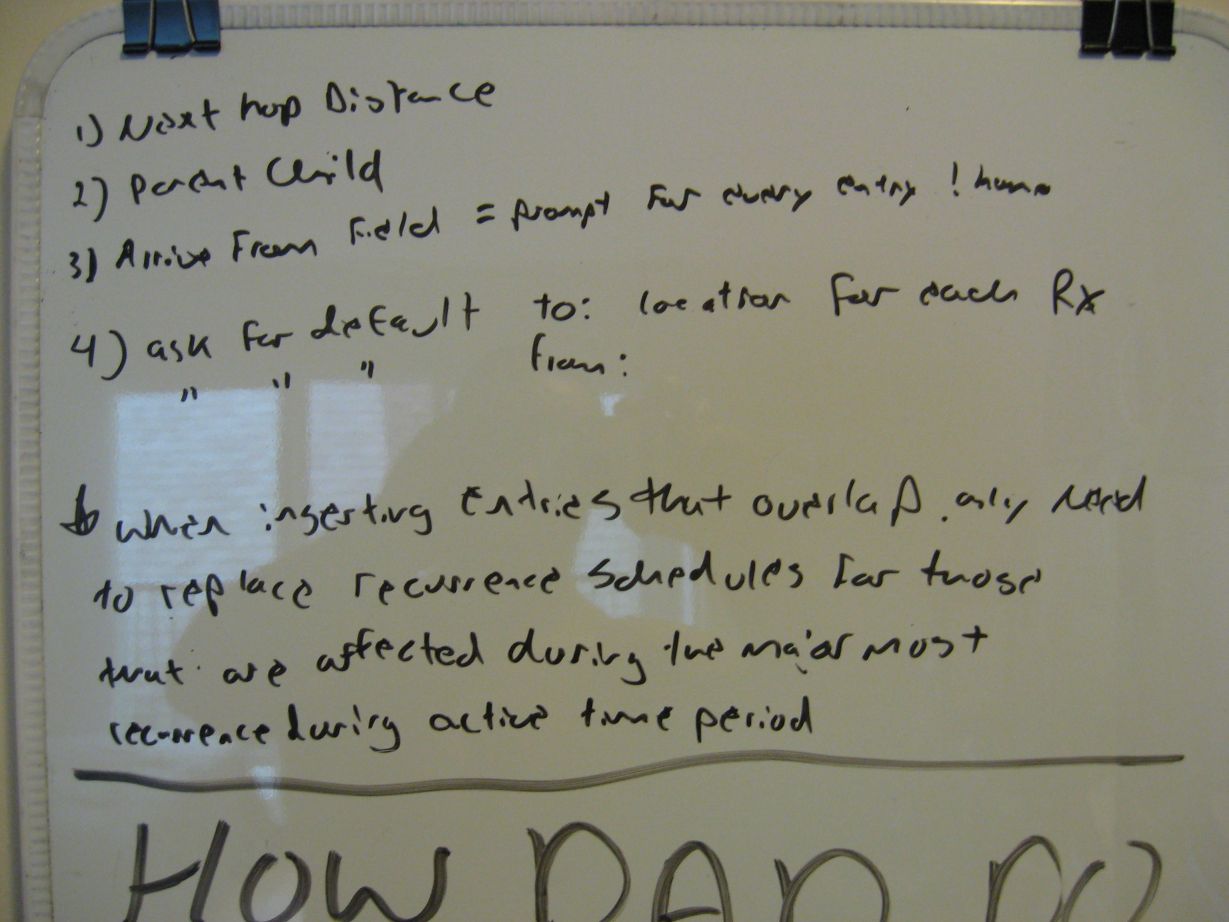 1) Next hop Distance
2) Parent Child
3) Arrive From Field = prompt for every entry ! home
4) ask for default to: location for each Rx
" " " From:
When inserting Entries that overlap, only need
to replace recurrence schedules for those
that are affected during the major most
recurrence during active time period
HOW DAD